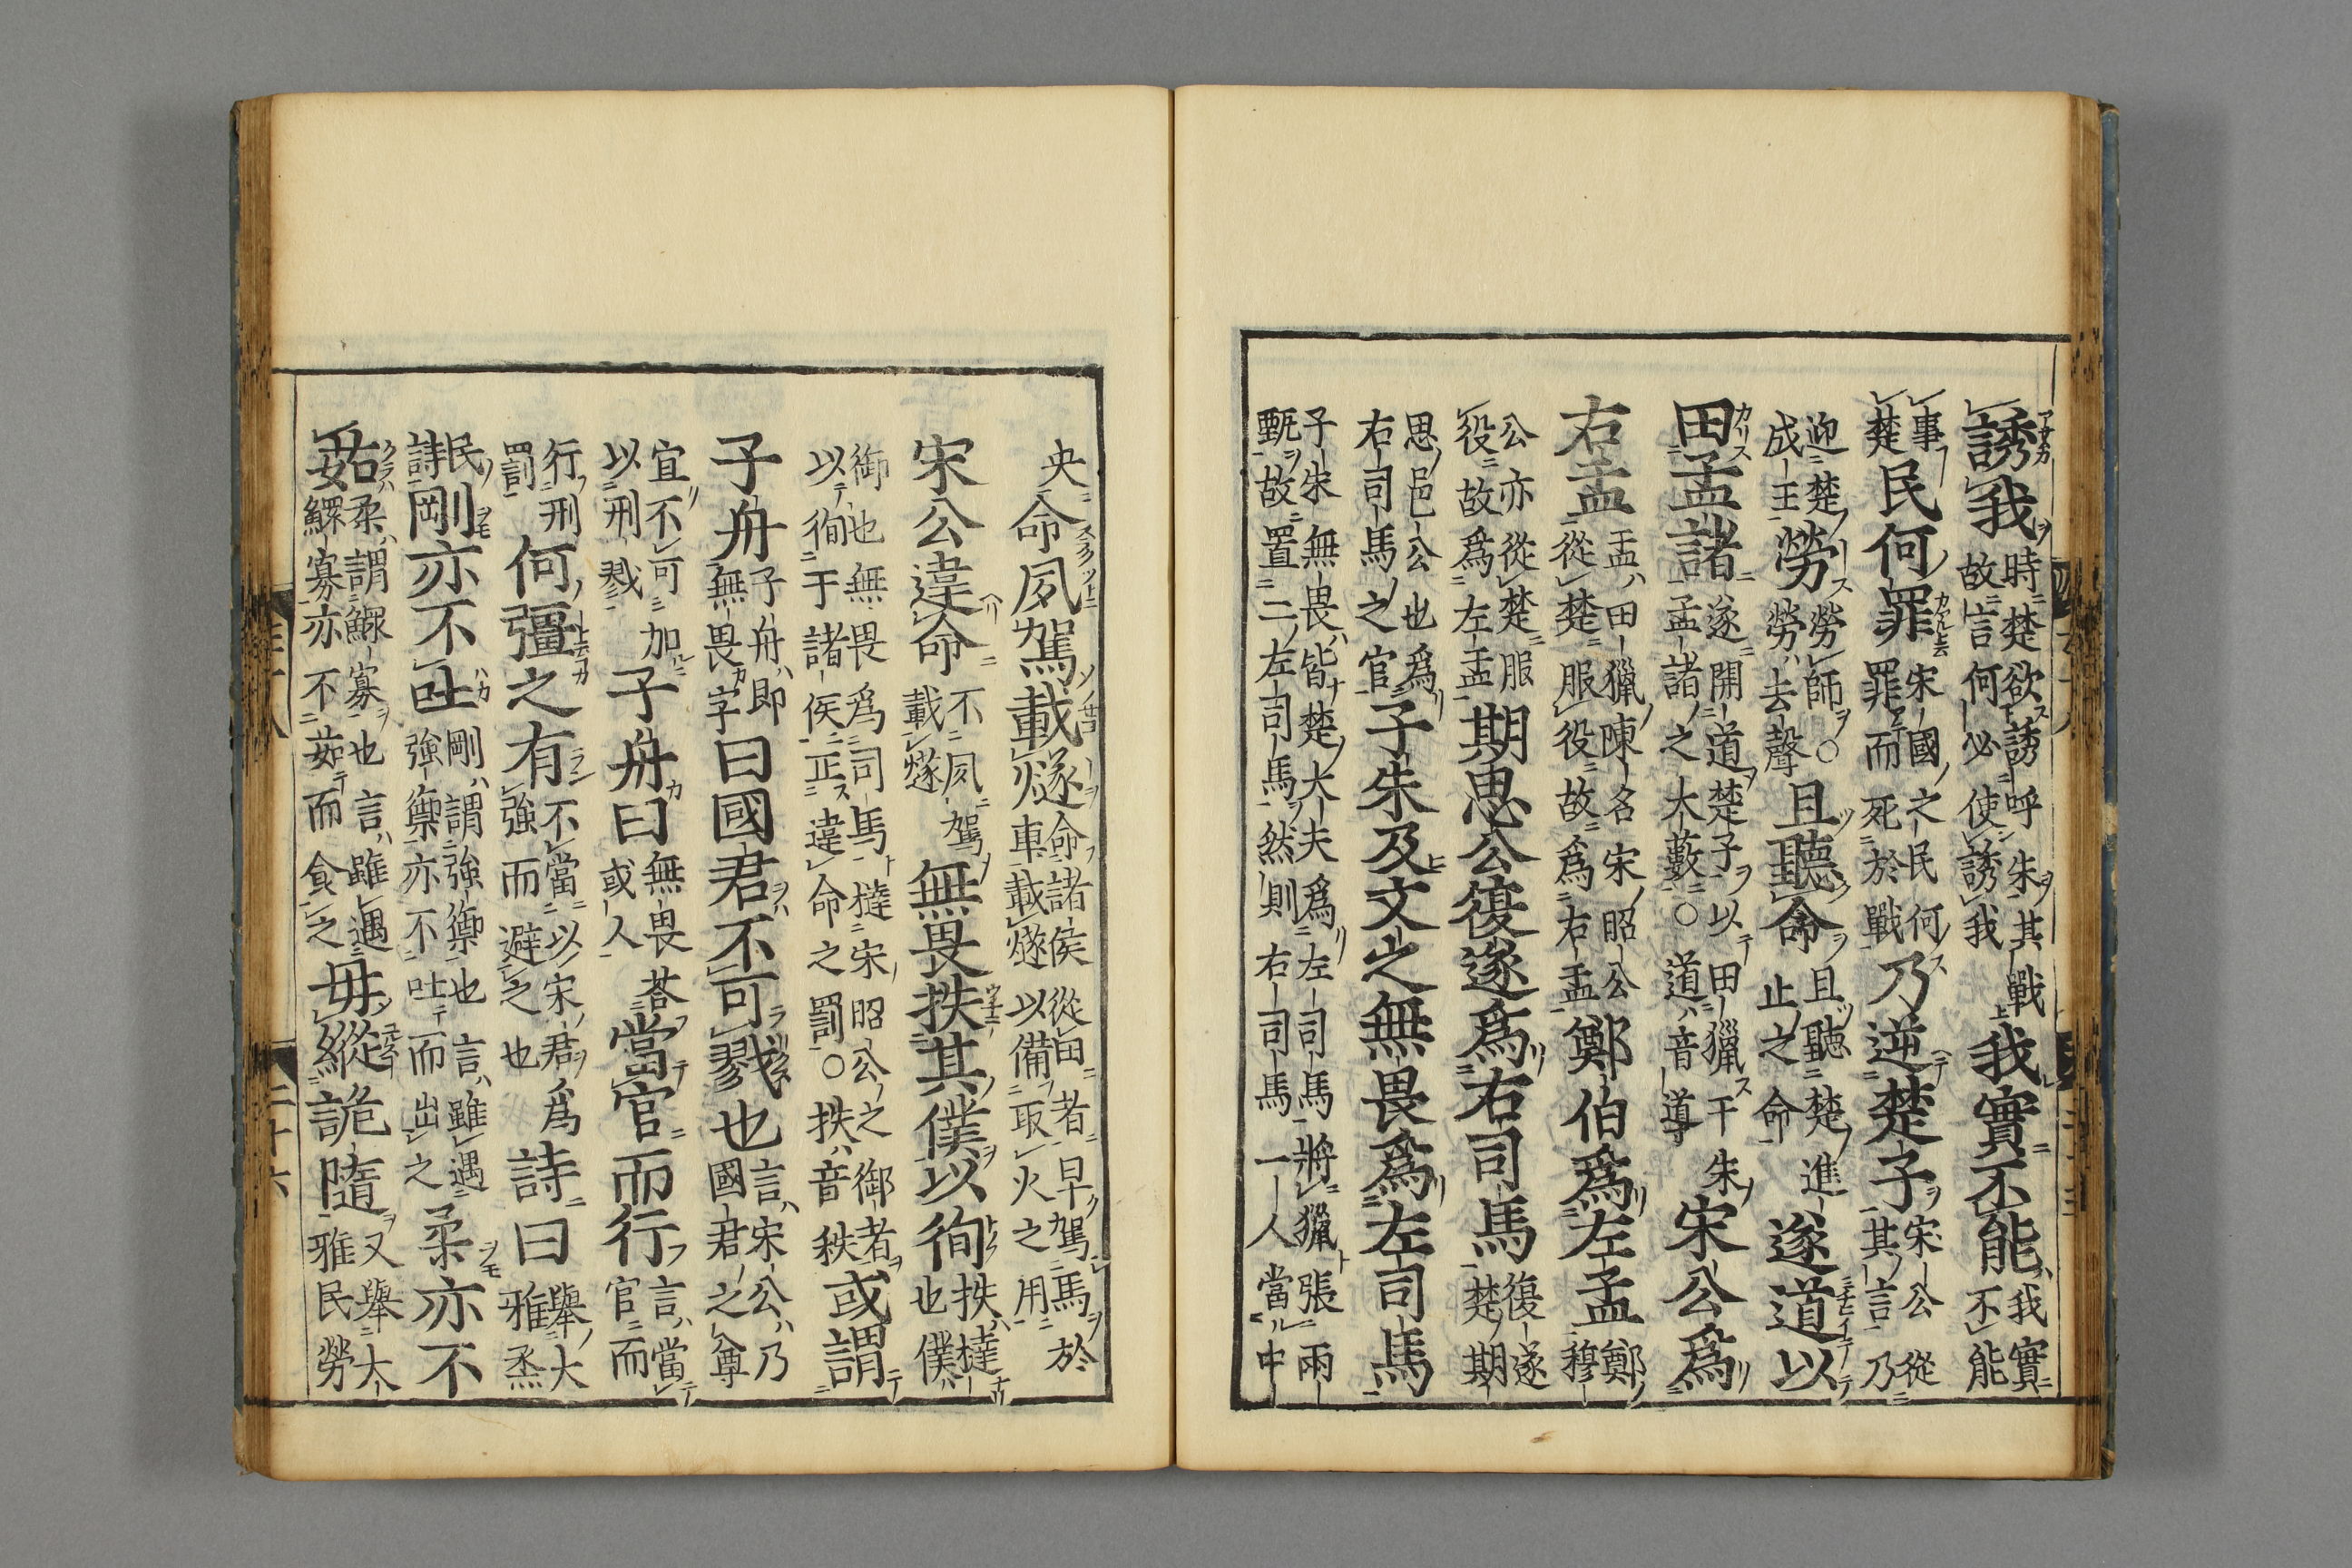 誘我時楚欲誘呼朱其戰故言何必使誘我我實不能我實不能
事楚民何罪宋國之民何罪而死於戰乃逆楚子宋公從其言乃
迎楚成王勞勞師○勞去聲且聽命且聽楚進止之命遂道以
田孟諸遂開道楚子以田獵于朱孟諸之大藪○道音導宋公爲
右盂盂田獵陳名宋昭公從楚服役故爲右盂鄭伯爲左盂鄭穆
公亦從楚服役故爲左盂期思公復遂爲右司馬復遂楚期
思邑公也爲右司馬之官子朱及文之無畏爲左司馬
子朱無畏皆楚大夫爲左司馬將獵張兩甄故置二左司馬然則右司馬一人當中
央命夙駕載燧命諸侯從田者早駕馬於車載燧以備取火之用
宋公違命不夙駕載燧無畏抶其僕以徇抶撻也僕
御也無畏爲司馬撻宋昭公之御者以徇于諸侯正違命之罰○抶音秩或謂
子舟子舟即無畏字曰國君不可戮也言宋公乃國君之尊
宜不可加以刑戮子舟曰無畏荅或人當官而行言當官而
行刑罰何彊之有不當以宋君爲強而避之也詩曰舉大雅烝
民詩剛亦不吐剛謂強禦也言雖遇強禦亦不吐而出之柔亦不
茹柔謂鰥寡也言雖遇鰥寡亦不茹而貪之毋縱詭隨又舉大雅民勞
二十六